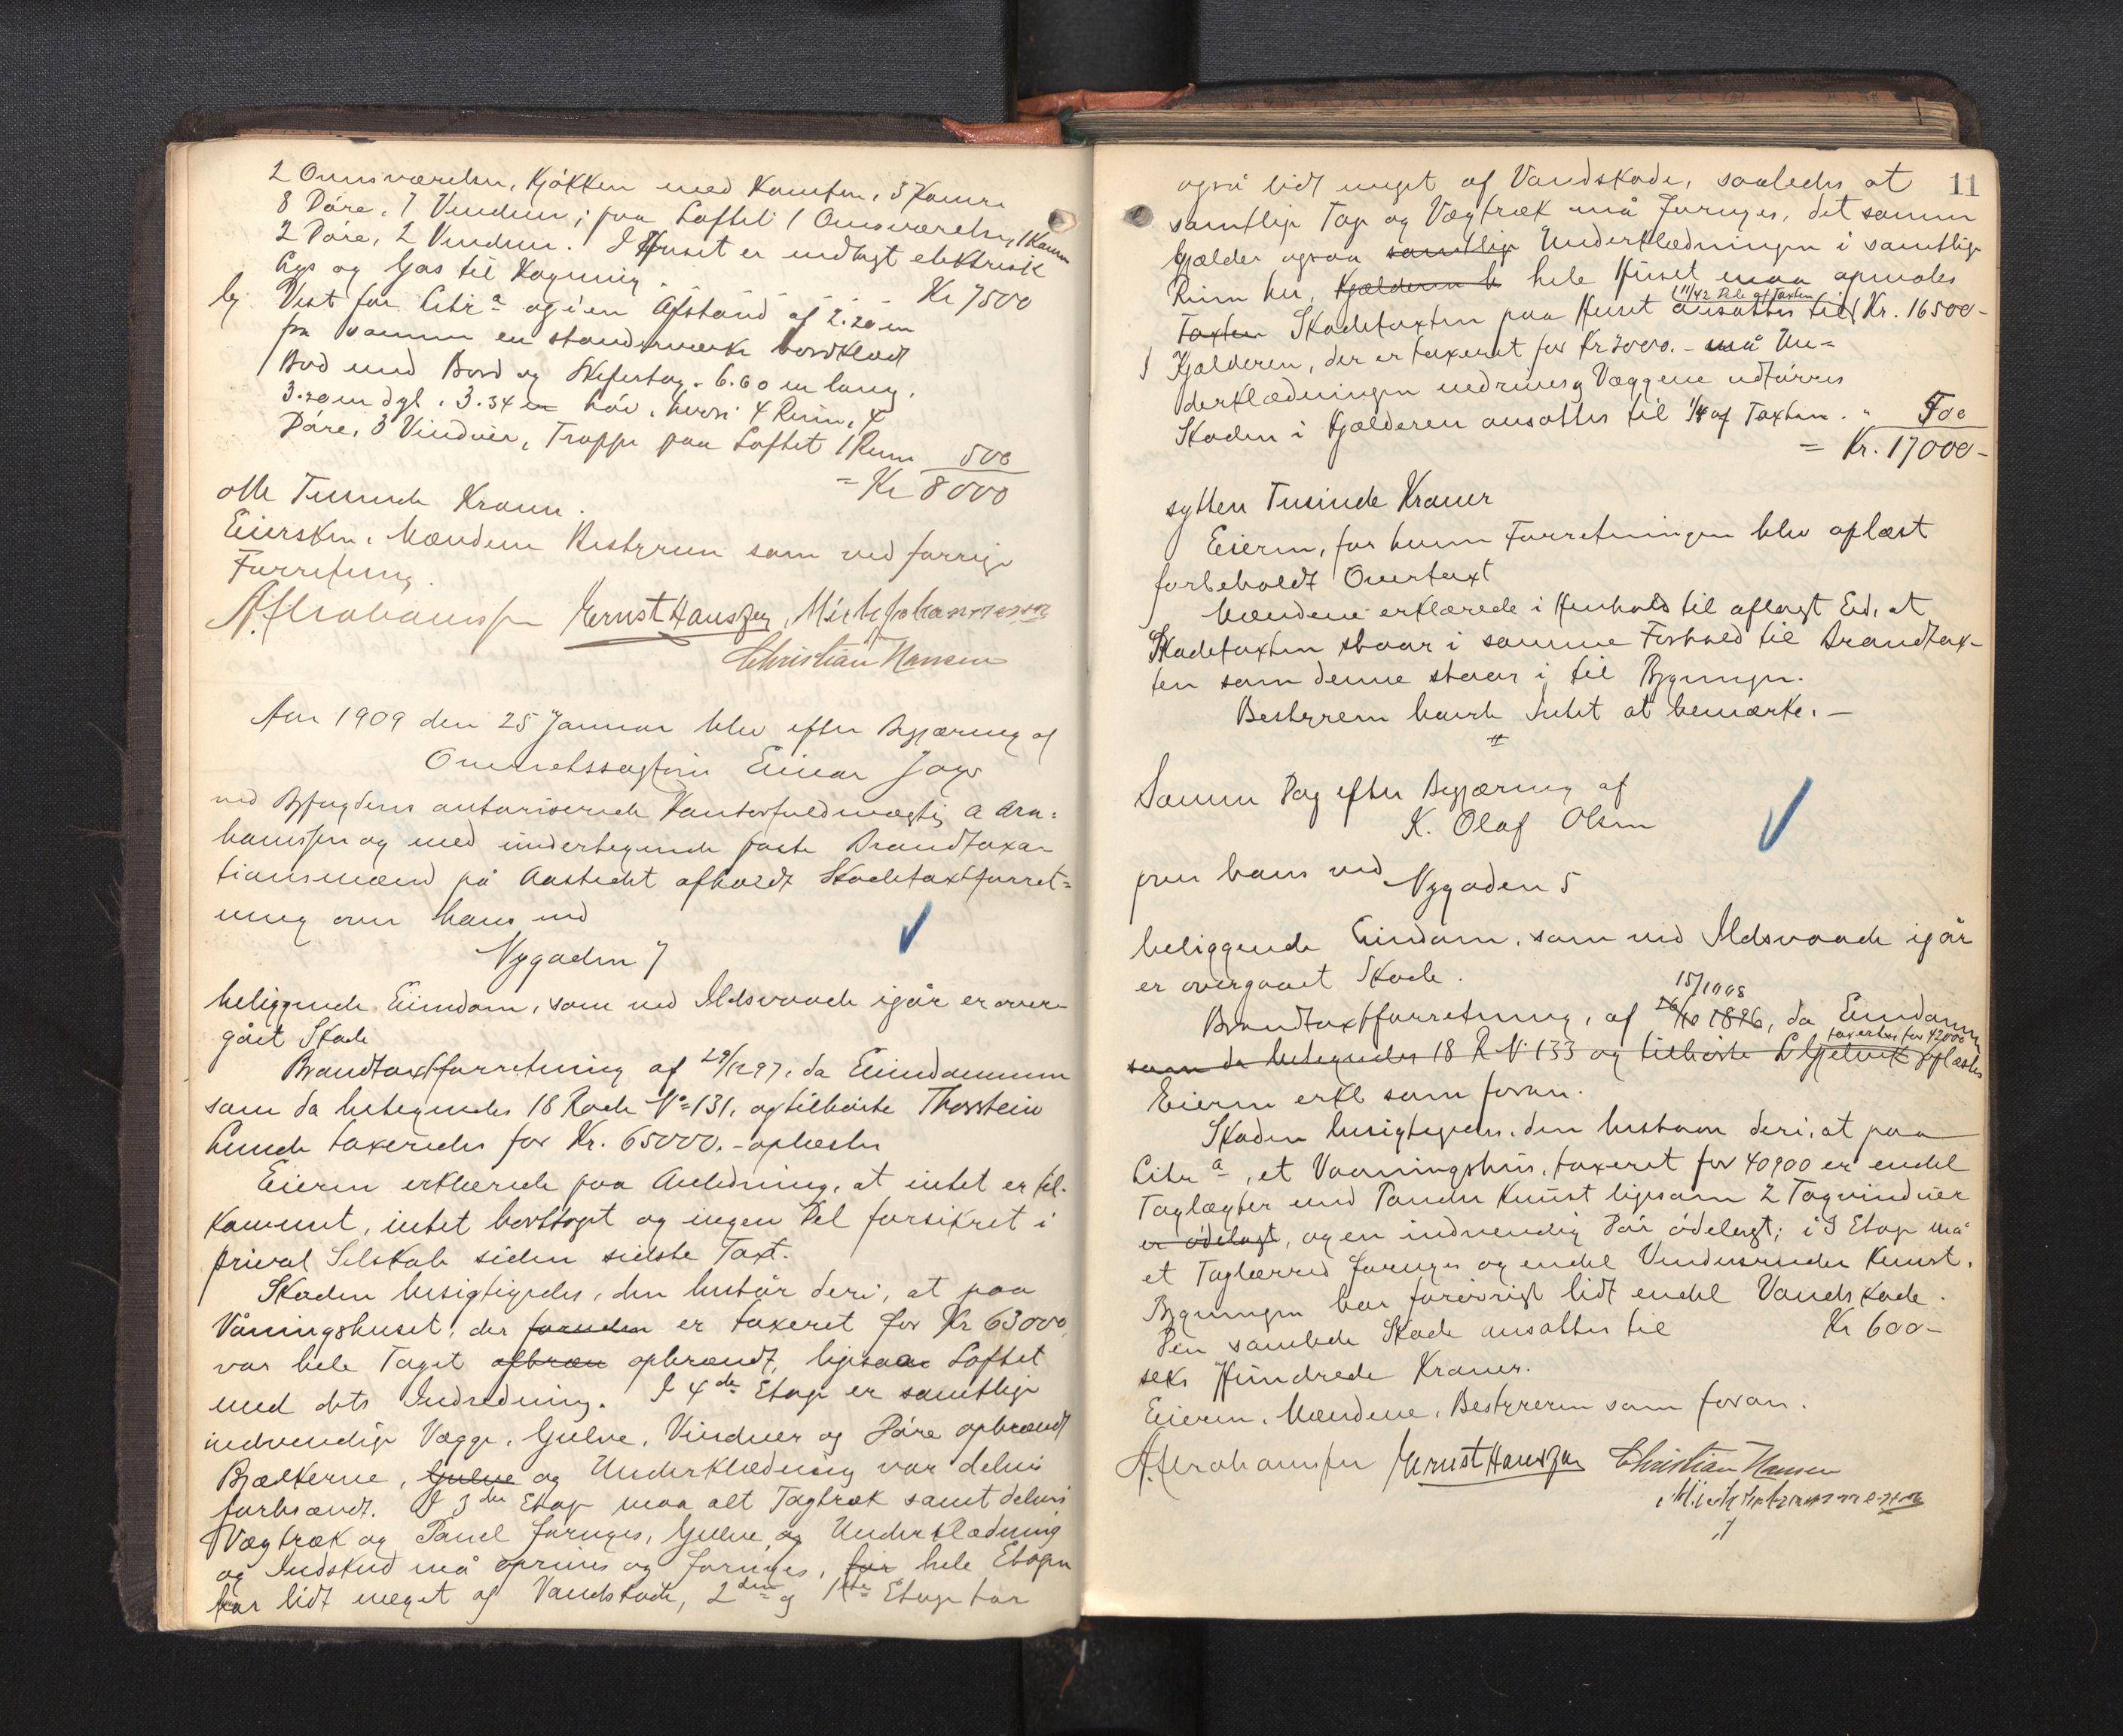 2 Onnsværelser, Kjøkken med Komfur, 3 Kamre
8 Døre, 7 Vinduer; paa Loftet 1 Onnsværelse, 1 Kammer
2 Døre, 2 Vinduer. I Huset er indlagt elektrisk
Lys og Gas til Kogning. Kr 7500
b, Vest for Litr a og i en Afstand af 2.20 m
fra samme en standerværks bordklædt
Bod med Bord og Skifertag. 6.60 m lang,
3.20 m dyb, 3.34 m høi, hvori 4 Rum, 4
Døre, 3 Vinduer, Trappe paa Loftet 1 Rum 500
= Kr 8000
otte Tusinde Kroner.
Eiersken, Mændene Bestyreren som ved forrige
Forretning.
A. Abrahamssen Ernst Hanssen, Mich Johannessen
Christian Hansen
Aar 1909 den 25 Januar blev efter Begjæring af
Overretssagfører Einar
ved Byfogdens autoriserede Kontorfuldmægtig A Abra=
hamssen og med undertegnede faste Brandtaxa-
tionsmænd på Aastedet afholdt Skadetaxtforret=
ning over hans ved
Nygaden 7
beliggende Eiendom, som ved Ildsvaade igår er over-
gået Skade
Brandtaxtforretning af 29/12 97, da Eiendommen
som da betegnedes 18 Rode No 131, og tilhørte Thorstein
Lunde taxeredes for Kr. 65000.- oplæstes
Eieren erklærede paa Anledning, at intet er til-
kommet, intet borttaget og ingen Del forsikret i
privat Selskab siden sidste Taxt.
Skaden besigtigedes, den består deri, at paa
Våningshuset, der foruden er taxeret for Kr 63000,
var hele Taget afbræn opbrændt, ligesaa Loftet
med dets Indredning. I 4de Etage er samtlige
indvendige Vægge, Gulve, Vinduer og Døre opbrændt
Bjælkerne, Gulve og Underklædning var delvis
forbrændt. I 3die Etage maa alt Tagtræk samt delvis
Vægtræk og Panel fornyes, Gulve og Underklædning
og Indskud må oprives og fornyes, før hele Etagen
har lidt meget af Vandskade, 2den og 1ste Etage har
11
også lidt meget af Vandskade, saaledes at
samtlige Tag og Vægtræk må fornyes, det samme
gjælder ogsaa samtlige Underklædningen i samtlige
Rum her, Kjælderen h hele Huset maa opmales
11/42 Dele af Taxten
Taxten Skadetaxten paa Huset ansættes til Kr. 16500-
I Kjælderen, der er taxeret for Kr 2000.- må Un=
derklædningen nedrives og Væggene udtørres
Skaden i Kjælderen ansættes til 1/4 af Taxten. " 500
= Kr. 17000-
sytten Tusinde Kroner
Eieren, for hvem Forretningen blev oplæst
forbeholdt Overtaxt
Mændene erklærede i Henhold til aflagt Ed, at
Skadetaxten staar i samme Forhold til Brandtax-
ten som denne staar i til Bygningen.
Bestyreren havde Intet at bemærke. —
Samme Dag efter Begjæring af
K. Olaf Olsen
over hans ved Nygaden 5
beliggende Eiendom, som ved Ildsvaade igår
er overgaaet Skade.
15/1908
Brandtaxtforretning, af 26/10 1896, da Eiendommen
taxertes for 42000
som da betegnedes 18 R No 133 og tilhørte oplæstes
Eieren erkl som foran.
Skaden besigtigedes, den bestaar deri, at paa
Litr a, et Vaaningshus, taxeret for 40900 er endel
Taglægter med Panelet Knust ligesom 2 Tagvinduer
er ødelagt, og en indvendig Dør ødelagt; i 3 Etage må
et Taglærred fornyes og endel Vinduesruder Knust.
Bygningen har forøvrigt lidt endel Vandskade.
Den samlede Skade ansættes til Kr 600-
seks Hundrede Kroner.
Eieren, Mændene, Bestyreren som foran.
A. Abrahamssen Ernst Hanssen Christian Hansen
Mich Johannessen